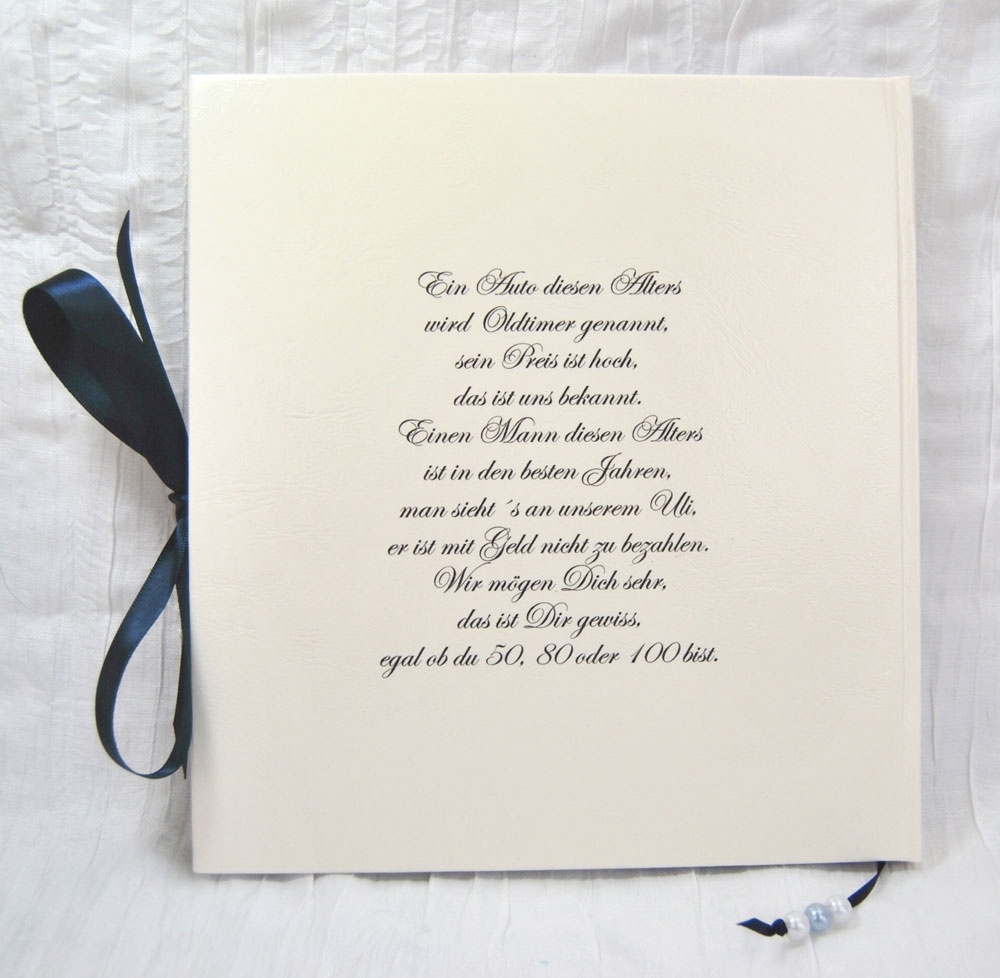 Ein Auto diesen Alters
wird Oldtimer genannt,
sein Preis ist hoch,
das ist uns bekannt.
Einen Mann diesen Alters
ist in den besten Jahren,
man sieht ´s an unserem Uli,
er ist mit Geld nicht zu bezahlen.
Wir mögen Dich sehr,
das ist Dir gewiss,
egal ob du 50, 80 oder 100 bist.